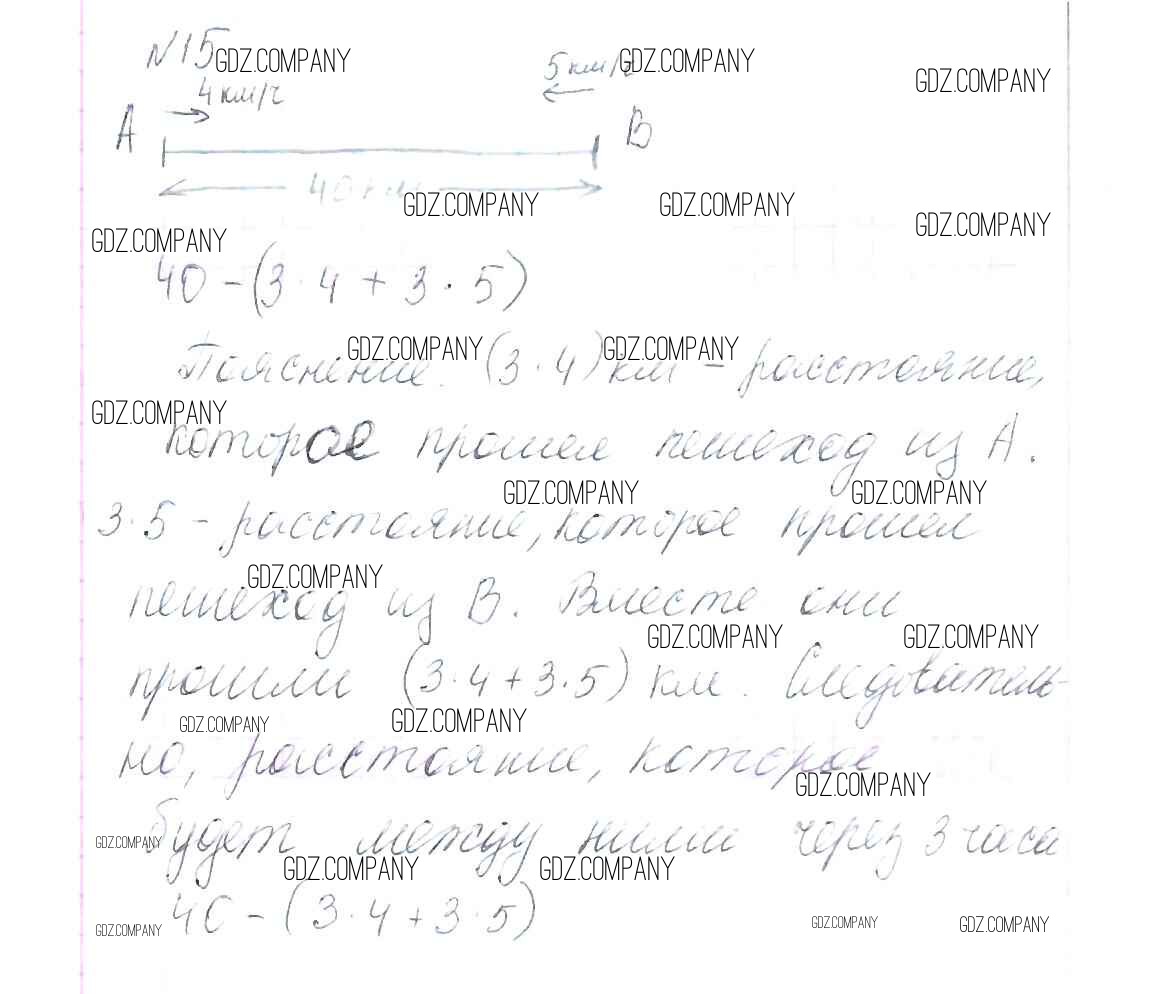 N15 GDZ.COMPANY GDZ.COMPANY GDZ.COMPANY
4 км/ч 5 км/ч
A B
40 км
GDZ.COMPANY GDZ.COMPANY GDZ.COMPANY
GDZ.COMPANY
40 - (3 · 4 + 3 · 5)
GDZ.COMPANY GDZ.COMPANY
Пояснение. (3 · 4) км - расстояние,
GDZ.COMPANY
которое прошел пешеход из A.
GDZ.COMPANY GDZ.COMPANY
3·5 - расстояние, которое прошел
GDZ.COMPANY
пешеход из B. Вместе они
GDZ.COMPANY GDZ.COMPANY
прошли (3·4+3·5) км. Следователь-
GDZ.COMPANY GDZ.COMPANY
но, расстояние, которое
GDZ.COMPANY
будет между ними через 3 часа
GDZ.COMPANY GDZ.COMPANY GDZ.COMPANY
40 - (3·4+3·5)
GDZ.COMPANY GDZ.COMPANY GDZ.COMPANY